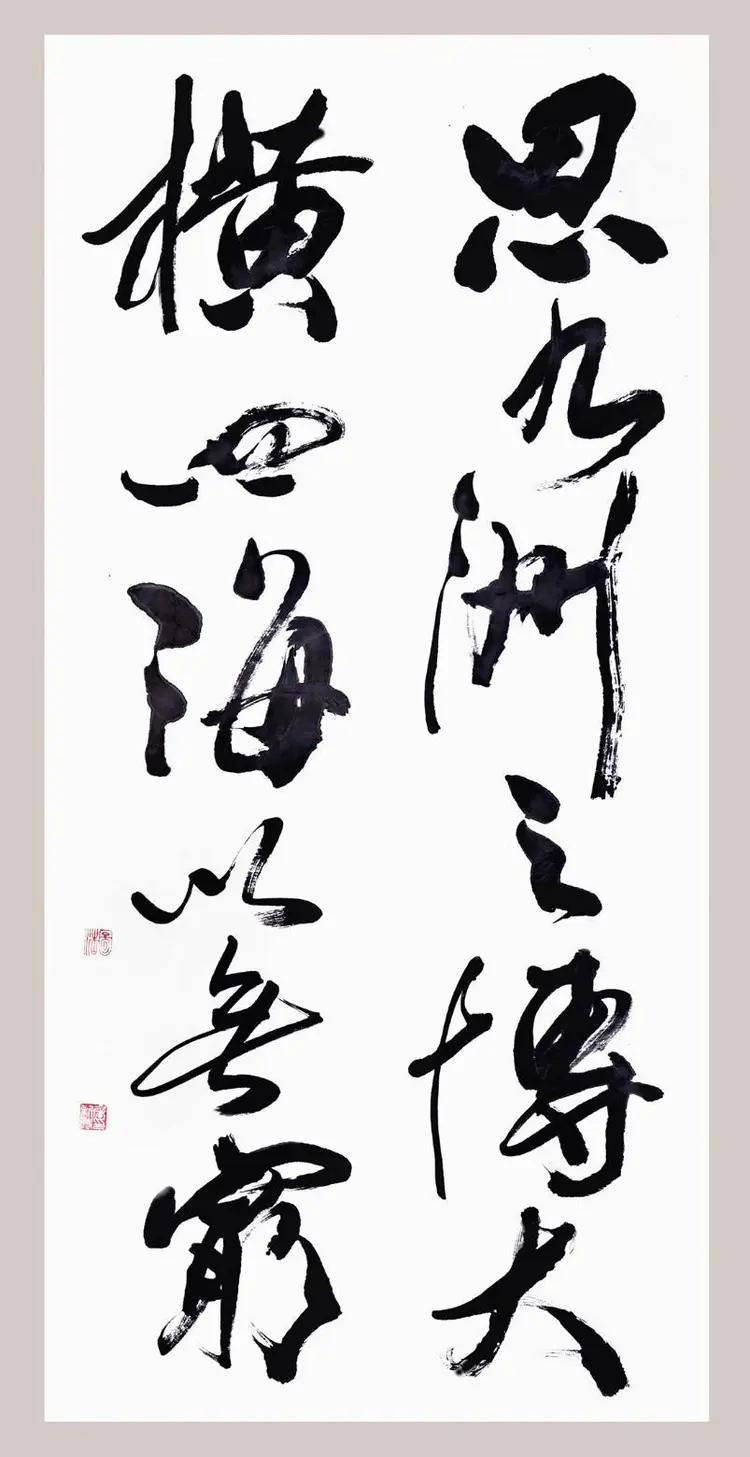 思九洲之博大
橫四海以無窮